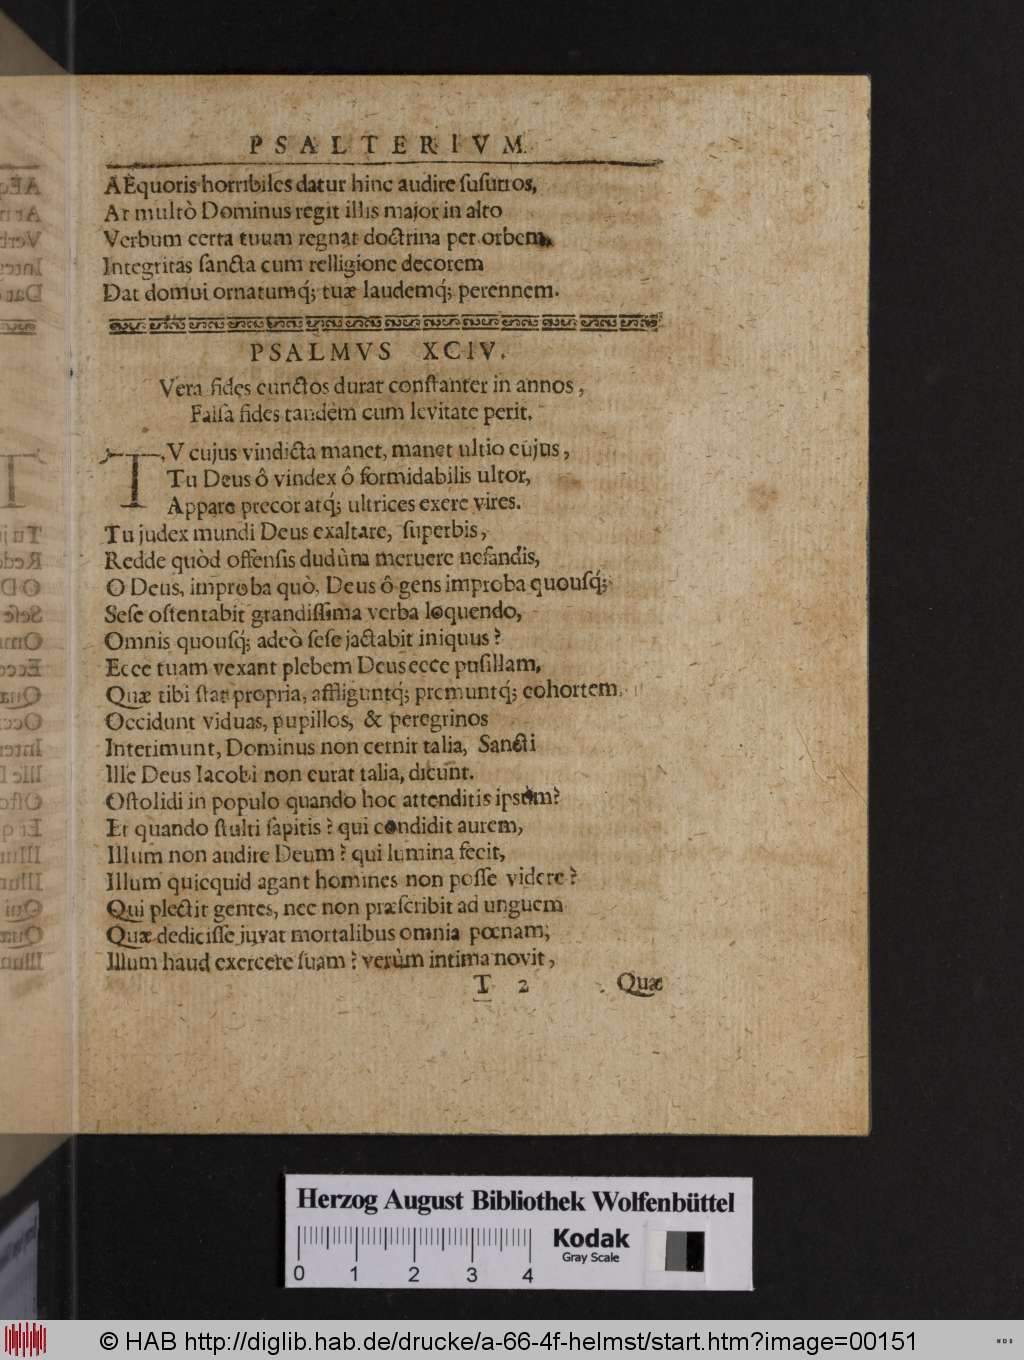 PSALTERIVM.
AEquoris horribiles datur hinc audire ſuſurros,
At multò Dominus regit illis major in alto
Verbum certa tuum regnat doctrina per orbem,
Integritas ſancta cum relligione decorem
Dat domui ornatumq́; tuæ laudemq́; perennem.
PSALMVS XCIV.
Vera fides cunctos durat conſtanter in annos,
Falſa fides tandem cum levitate perit.
TV cujus vindicta manet, manet ultio cujus,
Tu Deus ô vindex ô formidabilis ultor,
Appare precor atq́; ultrices exere vires.
Tu judex mundi Deus exaltare, ſuperbis,
Redde quòd offenſis dudùm meruere nefandis,
O Deus, improba quò, Deus ô gens improba quouſq́;
Seſe oſtentabit grandiſſima verba loquendo,
Omnis quouſq́; adeò ſeſe jactabit iniquus?
Ecce tuam vexant plebem Deus ecce puſillam,
Quæ tibi ſtat propria, affliguntq́; premuntq́; cohortem.
Occidunt viduas, pupillos, & peregrinos
Interimunt, Dominus non cernit talia, Sancti
Ille Deus Iacobi non curat talia, dicunt.
O ſtolidi in populo quando hoc attenditis ipsùm?
Et quando ſtulti ſapitis? qui condidit aurem,
Illum non audire Deum? qui lumina fecit,
Illum quicquid agant homines non poſſe videre?
Qui plectit gentes, nec non præſcribit ad unguem
Quæ dediciſſe juvat mortalibus omnia pœnam;
Illum haud exercere ſuam? verùm intima novit,
T 2 Quæ
Herzog August Bibliothek Wolfenbüttel
Kodak
Gray Scale
0 1 2 3 4
© HAB http://diglib.hab.de/drucke/a-66-4f-helmst/start.htm?image=00151